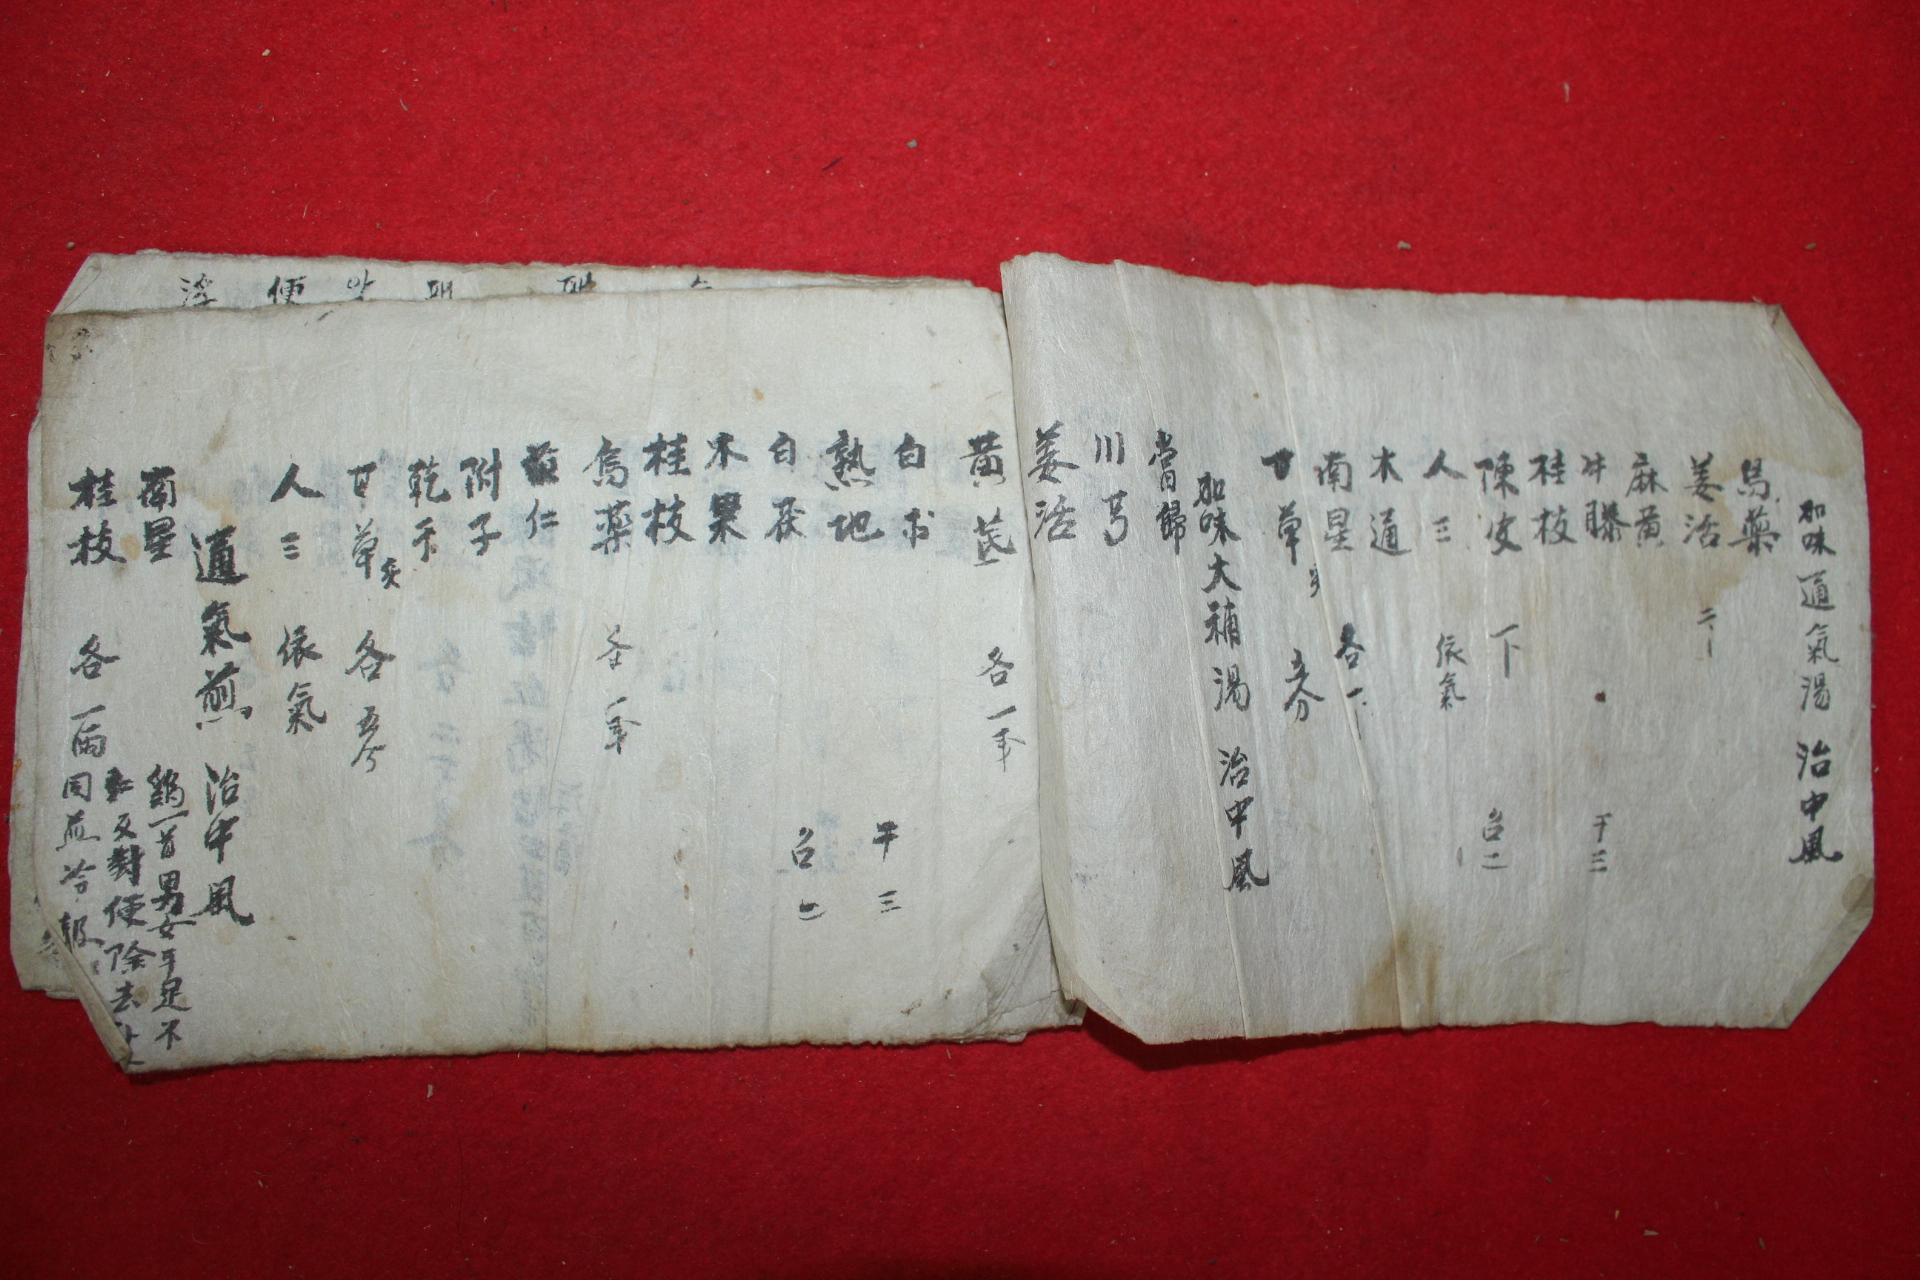 加味通氣湯 治中風
烏藥
羌活 二
麻黃
牛膝 干三
桂枝
陳皮 下 召二
人三 依氣
木通
南星 各一
甘草 五分
加味大補湯 治中風
當歸
川芎
羌活
黃芪 各一
白朮 干三
熟地
白茯 召二
木果
桂枝
烏藥 各一
仁
附子
乾干
甘草炙 各五分
人三 依氣
通氣煎 治中風
南星 鷄一首男女手足不
桂枝 各一兩 同煎冷服
又對便除去
便